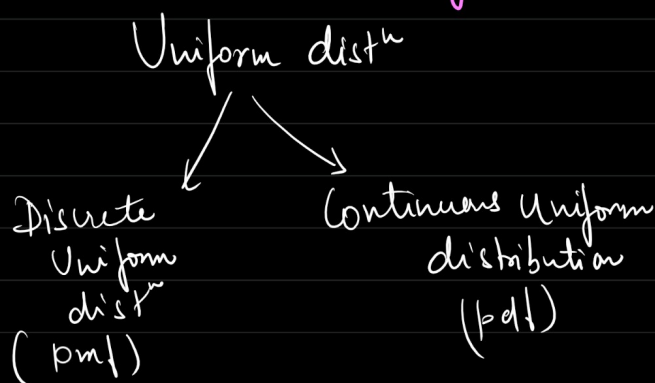 Uniform distⁿ
Discrete
Uniform
distⁿ
(pmf)
Continuous Uniform
distribution
(pdf)